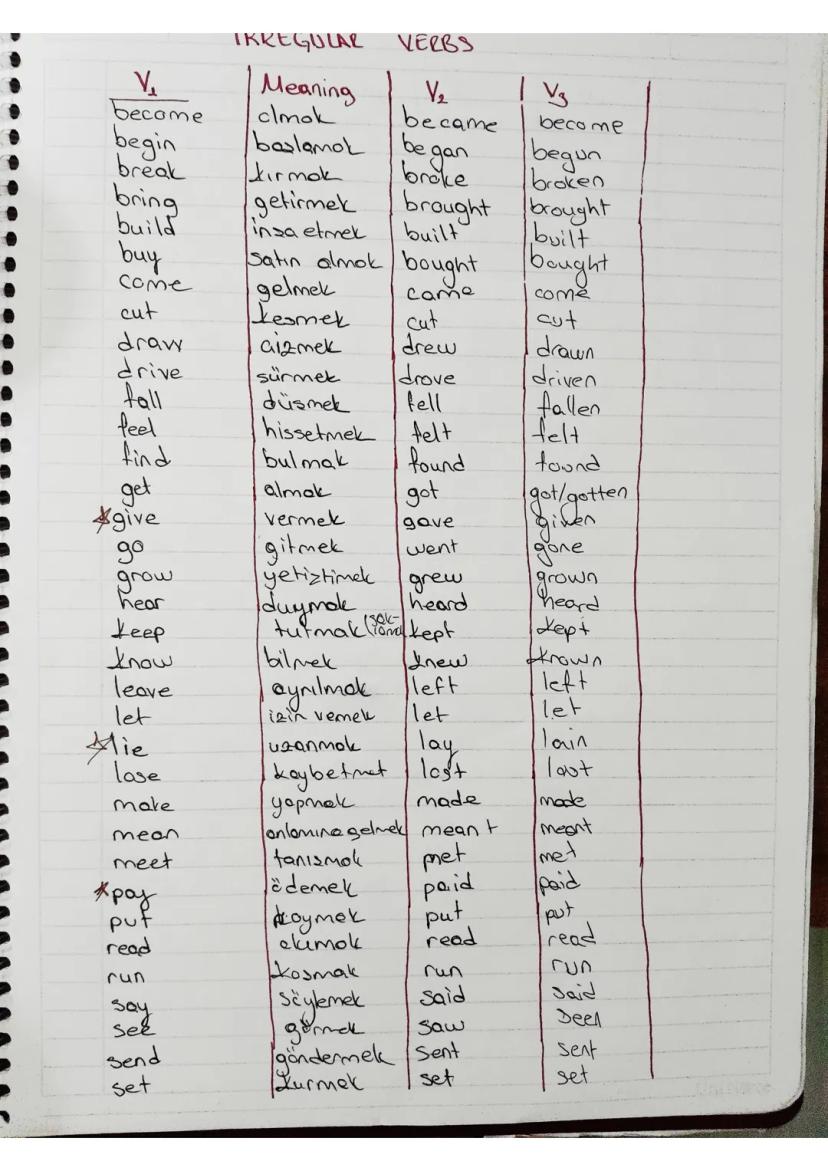 IRREGULAR VERBS
V1 Meaning V2 V3
become olmak became become
begin baslamak began begun
break kırmak broke broken
bring getirmek brought brought
build insa etmek built built
buy satın almak bought bought
come gelmek came come
cut kesmek cut cut
draw cizmek drew drawn
drive sürmek drove driven
fall düsmek fell fallen
feel hissetmek felt felt
find bulmak found found
get almak got got/gotten
give vermek gave given
go gitmek went gone
grow yetiztimek grew grown
hear duymak heard heard
keep tutmak (sak- kept kept
lama
know bilmek knew known
leave ayrılmak left left
let izin vemek let let
lie uzanmak lay lain
lose kaybetmet lost lost
make yapmak made made
mean anlamına gelmek meant meant
meet tanısmak met met
pay ödemek paid paid
put koymek put put
read okumak read read
run kosmak run run
say söylemek said said
see görmek saw seen
send göndermek sent sent
set kurmak set set